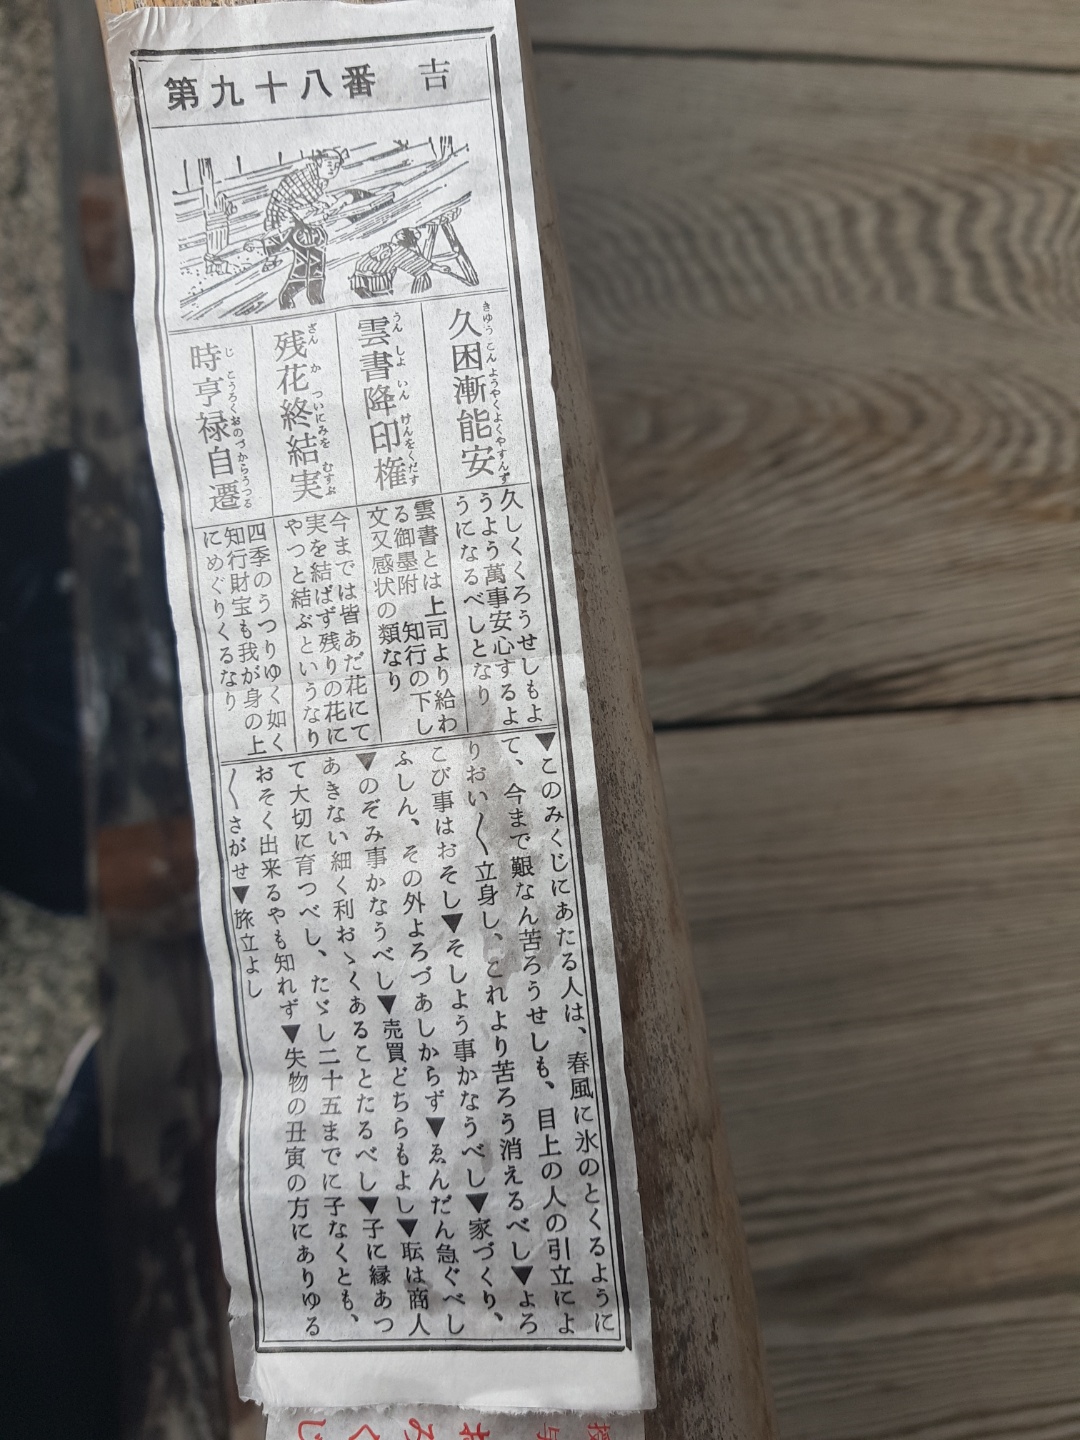 第九十八番 吉
久困漸能安
きゆうこんようやくよくやすんず
雲書降印権
うんしよいんけんをくだす
残花終結実
ざんかついにみをむすぶ
時亨禄自遷
じこうろくおのづからうつる
久しくくろうせしもよ
うよう萬事安心するよ
うになるべしとなり
雲書とは上司より給わ
る御墨附 知行の下し
文又感状の類なり
今までは皆あだ花にて
実を結ばず残りの花に
やつと結ぶというなり
四季のうつりゆく如く
知行財宝も我が身の上
にめぐりくるなり
▼このみくじにあたる人は、春風に氷のとくるように
て、今まで艱なん苦ろうせしも、目上の人の引立によ
りおい〱立身し、これより苦ろう消えるべし▼よろ
こび事はおそし▼そしよう事かなうべし▼家づくり、
ふしん、その外よろづあしからず▼ゑんだん急ぐべし
▼のぞみ事かなうべし▼売買どちらもよし▼耘は商人
あきない細く利おゝくあることたるべし▼子に縁あつ
て大切に育つべし、たゞし二十五までに子なくとも、
おそく出来るやも知れず▼失物の丑寅の方にありゆる
〱さがせ▼旅立よし
おみくじ